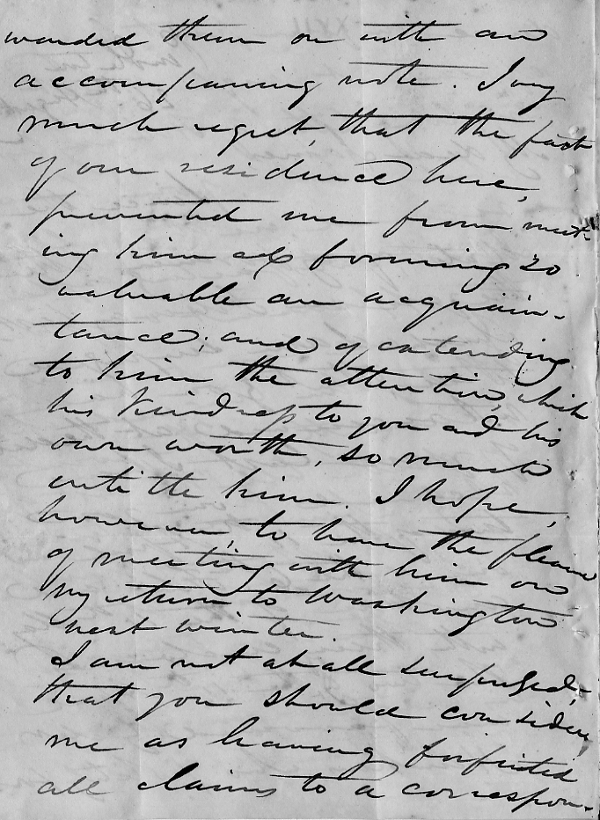 warded them on with an
accompaning note. I very
much regret, that the fact
of our residence here,
prevented me from meet-
ing him & forming so
valuable an acquain-
tance; and of extending
to him the attention, which
his kindness to you and his
own worth, so much
entitle him. I hope,
however, to have the pleasure
of meeting with him on
my return to Washington
next winter.
I am not at all surprised,
that you should consider
me as having forfeited
all claims to a correspon-